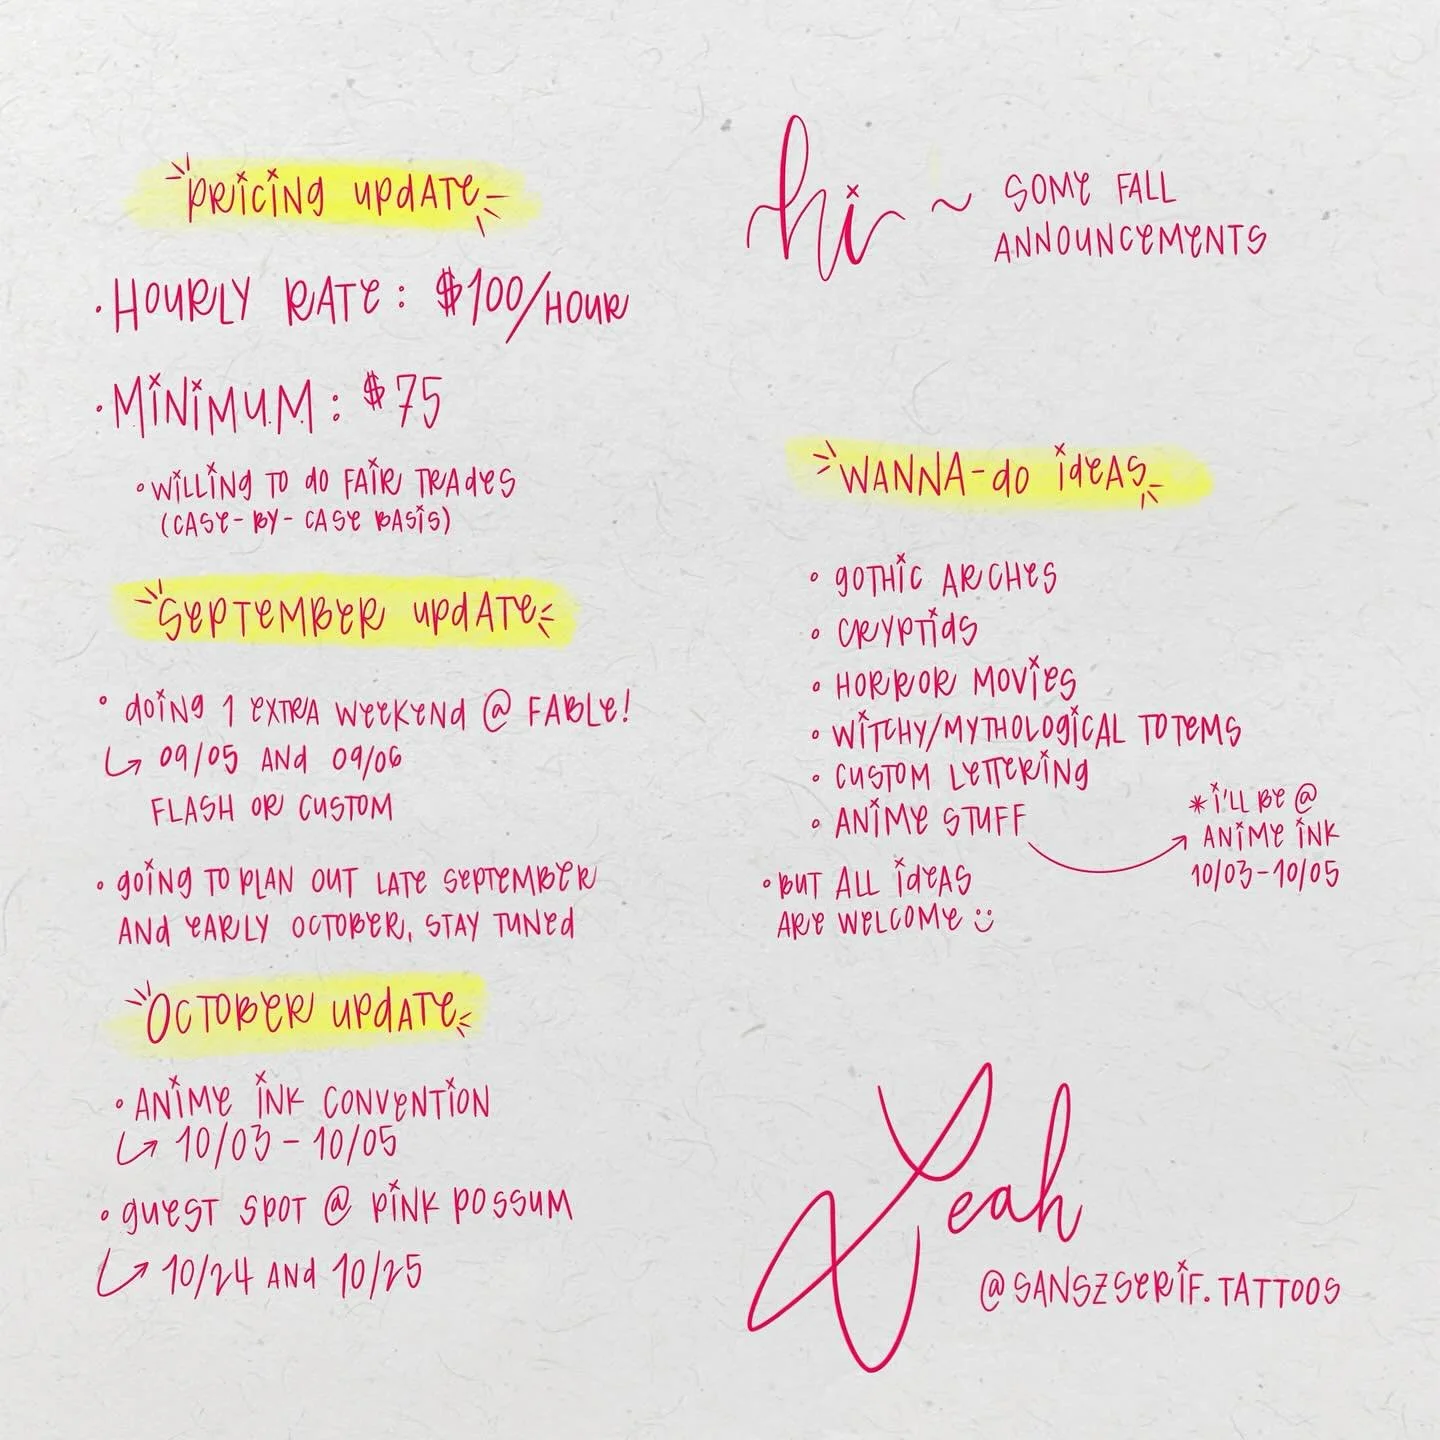 hi ~ SOME FALL
ANNOUNCEMENTS
PRICING UPDATE
• HOURLY RATE: $100/HOUR
• MINIMUM: $75
• WILLING TO DO FAIR TRADES
(CASE-BY-CASE BASIS)
SEPTEMBER UPDATE
• DOING 1 EXTRA WEEKEND @ FABLE!
↳ 09/05 AND 09/06
FLASH OR CUSTOM
• GOING TO PLAN OUT LATE SEPTEMBER
AND EARLY OCTOBER, STAY TUNED
OCTOBER UPDATE
• ANIME INK CONVENTION
↳ 10/03 - 10/05
• GUEST SPOT @ PINK POSSUM
↳ 10/24 AND 10/25
WANNA-DO IDEAS
• GOTHIC ARCHES
• CRYPTIDS
• HORROR MOVIES
• WITCHY/MYTHOLOGICAL TOTEMS
• CUSTOM LETTERING
• ANIME STUFF
* I'LL BE @
ANIME INK
10/03-10/05
• BUT ALL IDEAS
ARE WELCOME :)
Leah
@SANSZSERIF.TATTOOS